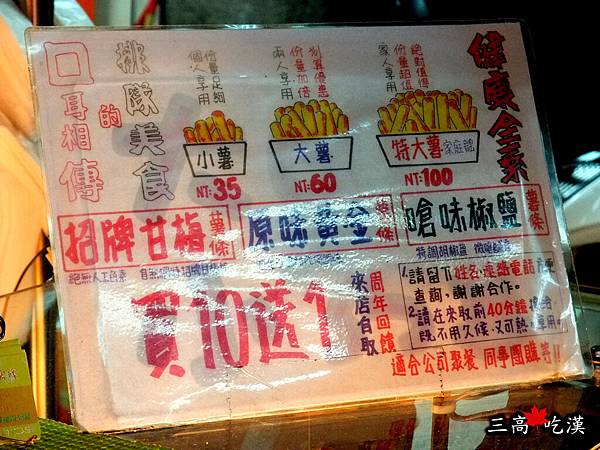 口耳相傳的
排隊美食
份量足夠
個人享用
小薯
NT:35
划算優惠
份量加倍
兩人享用
大薯
NT:60
絕對值得
份量超值
家人享用
特大薯 家庭號
NT:100
健康全菜
招牌甘梅薯條
原味黃金薯條
嗆味椒鹽薯條
絕無人工色素
特調胡椒鹽
買10送1
周年回饋
來店自取
1.請留下姓名、連絡電話方便
查詢,謝謝合作。
2.請在來取前40分鐘
既不用久候、又可熱
適合公司聚餐 同事團購等!!
三高 吃漢